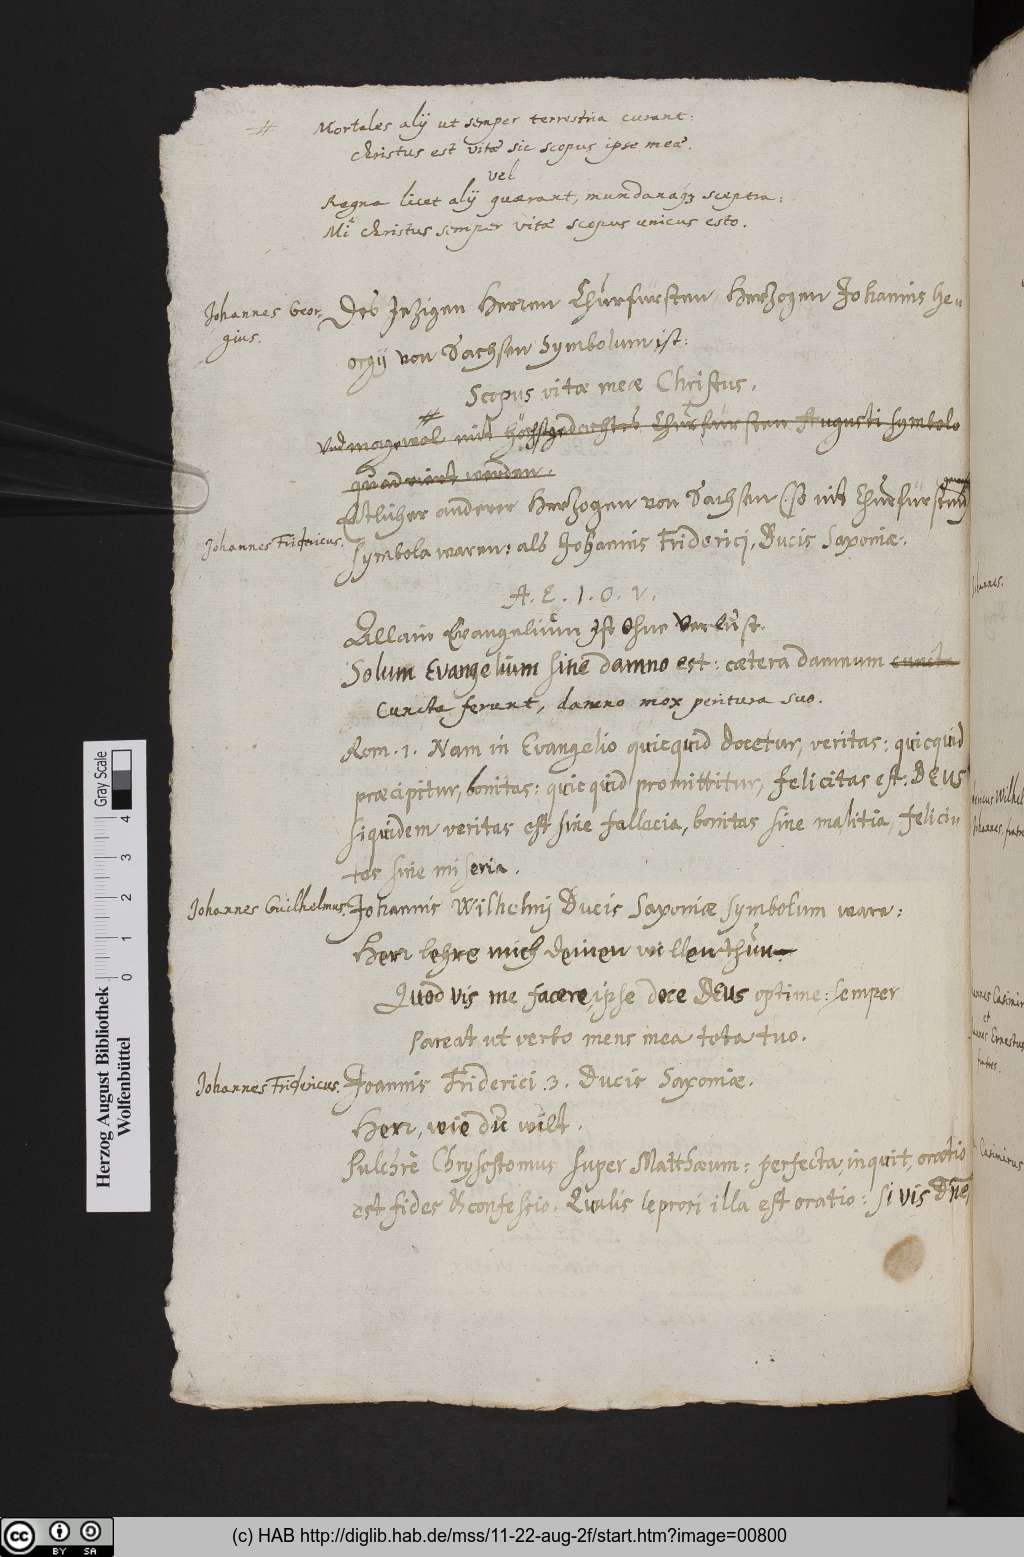 # Mortales alij ut semper terrestria curant:
Christus est vitæ sic scopus ipse meæ.
vel
Regna licet alij quærant, mundanaqꝫ sceptra:
Mi Christus semper vitæ scopus unicus esto.
Johannes Geor-
gius.
Des Jezigen Herren Churfursten Herzogen Johannis Ge-
orgij von Sachsen Symbolum ist:
Scopus vitæ meæ Christus.
#
Vnd mag wol mit höchstgedachtes Churfursten Augusti symbolo
quadrirt werden.
Etlicher anderer Herzogen von Sachsen (so nit Churfursten
Johannes Fridericus.
symbola waren: als Johannis Friderici, Ducis Saxoniæ.
A. E. I. O. V.
Allain Evangelium Ist Ohne Verlust.
Solum Evangelium sine damno est: cætera damnum cuncta
Cuncta ferunt, damno mox peritura suo.
Rom. 1. Nam in Evangelio quicquid docetur, veritas: quicquid
præcipitur, bonitas: quicquid promittitur, felicitas est. DEUS
siquidem veritas est sine fallacia, bonitas sine malitia, felici-
tas sine miseria.
Johannes Guilhelmus.
Johannis Wilhelmj Ducis Saxoniæ symbolum ware:
Herr lehre mich deinen willen thun
Quod vis me facere, ipse doce DEUS optime: semper
Pareat ut verbo mens mea tota tuo.
Johannes Fridericus.
Joannis Friderici .3. Ducis Saxoniæ.
Herr, wie du wilt.
Pulchrè Chrysostomus super Matthæum: perfecta, inquit, oratio
est fides & confessio. Qualis leprosi illa est oratio: si vis Dne,
Johannes.
Wilhel
Johannes, fratr
Casimir
et
Ernestus
fratres.
Casimirus
Herzog August Bibliothek
Wolfenbüttel
Gray Scale
0 1 2 3 4
cc BY SA
(c) HAB http://diglib.hab.de/mss/11-22-aug-2f/start.htm?image=00800